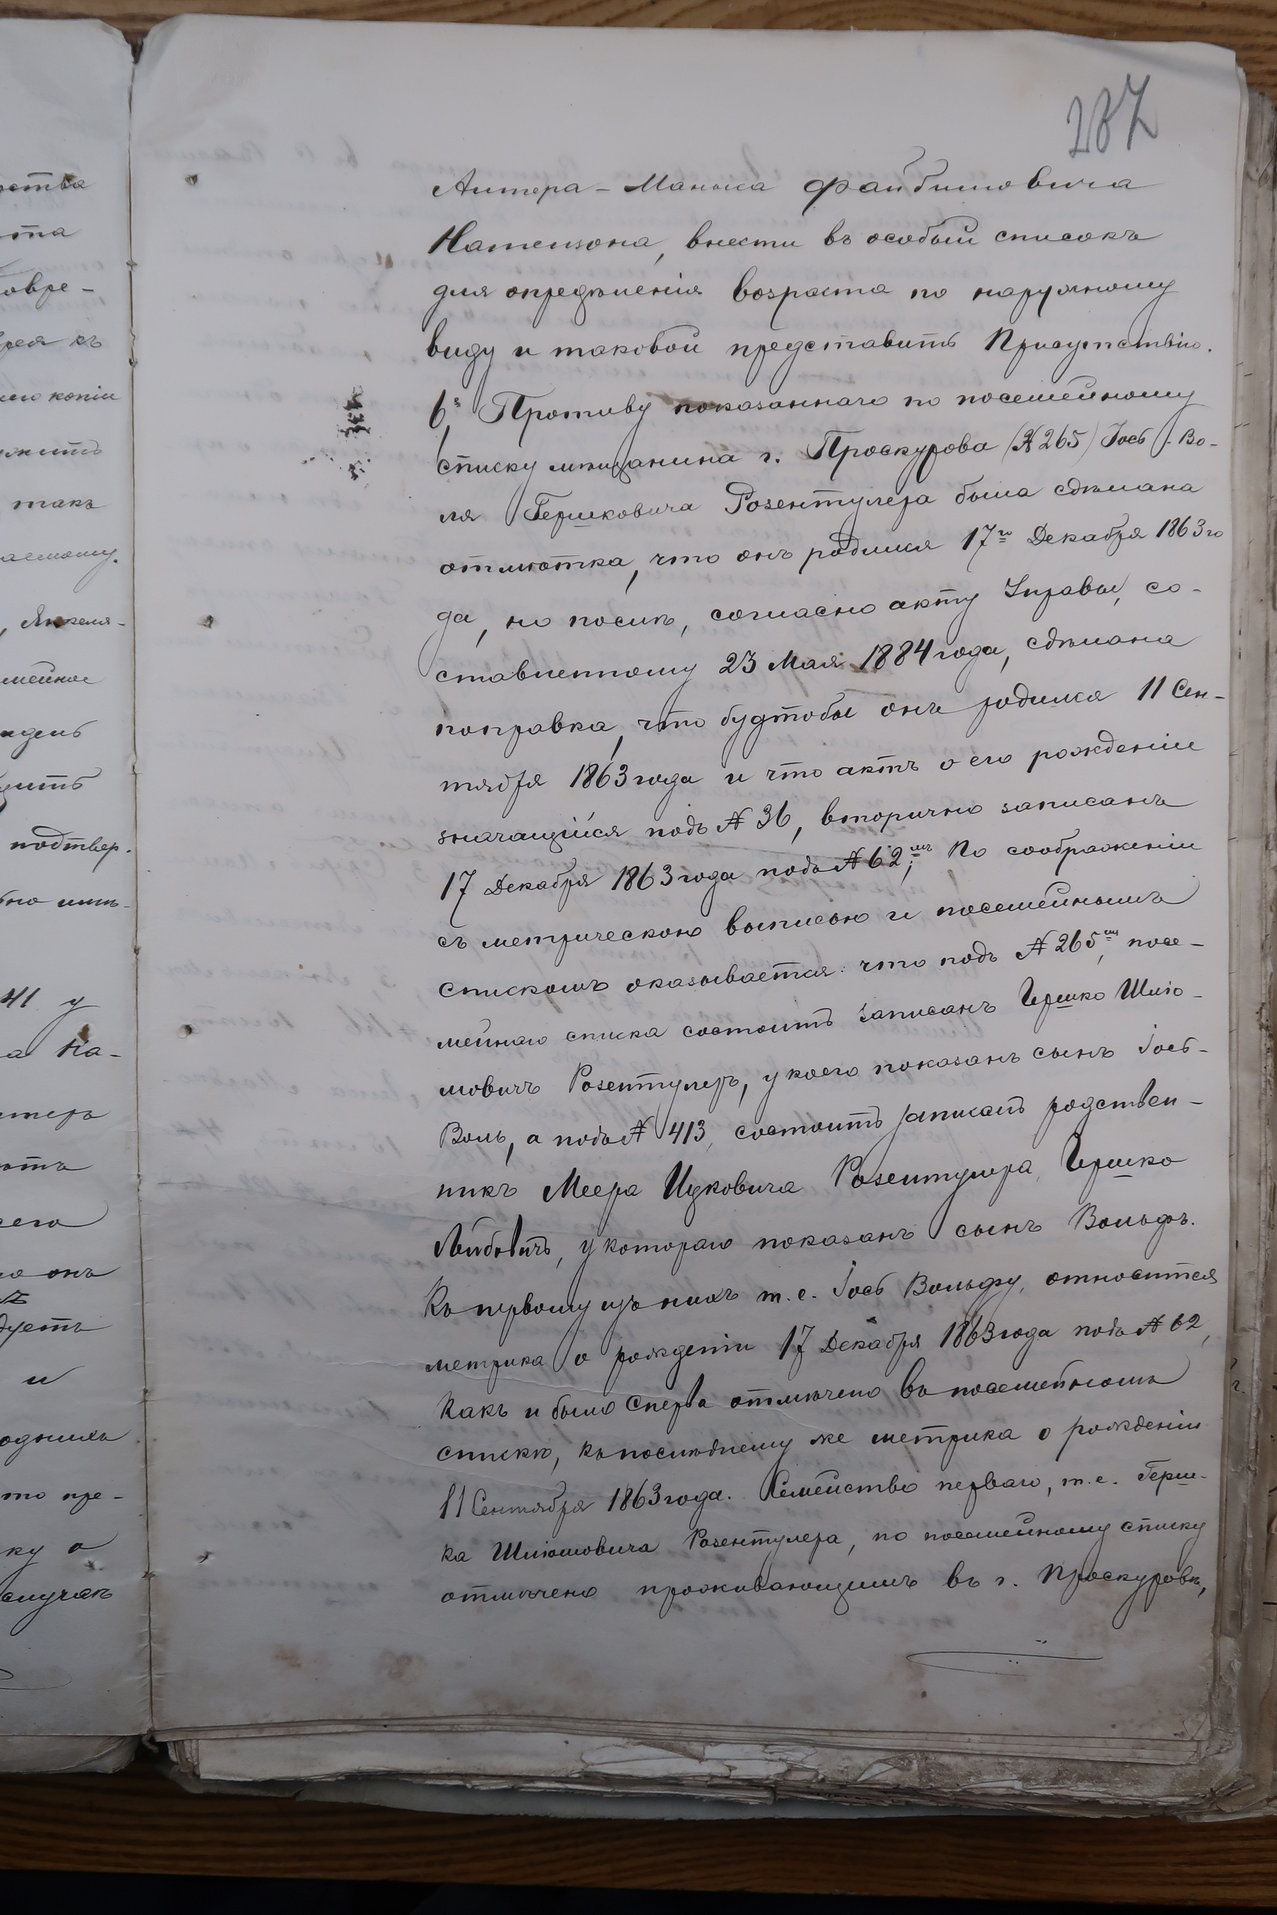 287
Алтера-Маныса Файбишовича
Натензона, внести въ особый списокъ
для опредѣленія возраста по наружному
виду и таковой представить Присутствію.
6, Противу показаннаго по посемейному
списку мѣщанина г. Проскурова (№ 265) Іось-Во-
ля Гершковича Розентулера была сдѣлана
отмѣтка, что онъ родился 17го Декабря 1863 го
да, но послѣ, согласно акту Управы, со-
ставленному 23 Мая 1884 года, сдѣлана
поправка, что будтобы онъ родился 11 Сен-
тября 1863 года и что актъ о его рожденіи
значащійся подъ № 36, вторично записанъ
17 Декабря 1863 года подъ № 62; По соображеніи
съ метрическою выписью и посемейнымъ
спискомъ оказывается: что подъ № 265мъ, посе-
мейнаго списка состоитъ записанъ Гершко Шліо-
мовичъ Розентулеръ, у коего показанъ сынъ Іось-
Воль, а подъ № 413, состоитъ записанъ родствен-
никъ Меера Ицковича Розентулера, Гершко
Лейбовичъ, у котораго показанъ сынъ Вольфъ.
Къ первому изъ нихъ т.е. Іось Вольфу, относится
метрика о рожденіи 17 Декабря 1863 года подъ № 62,
какъ и было сперва отмѣчено въ посемейномъ
спискѣ, къ послѣднему же метрика о рожденіи
11 Сентября 1863 года. Семейство перваго, т.е. Герш-
ка Шліомовича Розентулера, по посемейному списку
отмѣчено проживающимъ въ г. Проскуровѣ,